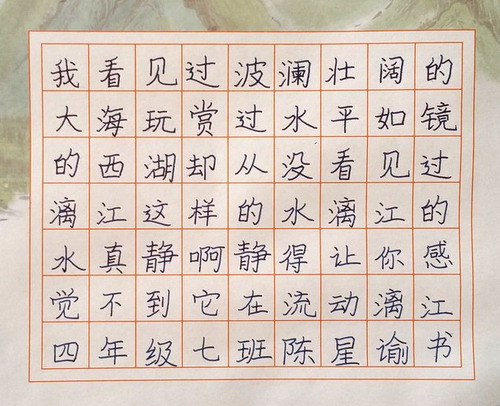 我看见过波澜壮阔的
大海玩赏过水平如镜
的西湖却从没看见过
漓江这样的水漓江的
水真静啊静得让你感
觉不到它在流动漓江
四年级七班陈星谕书